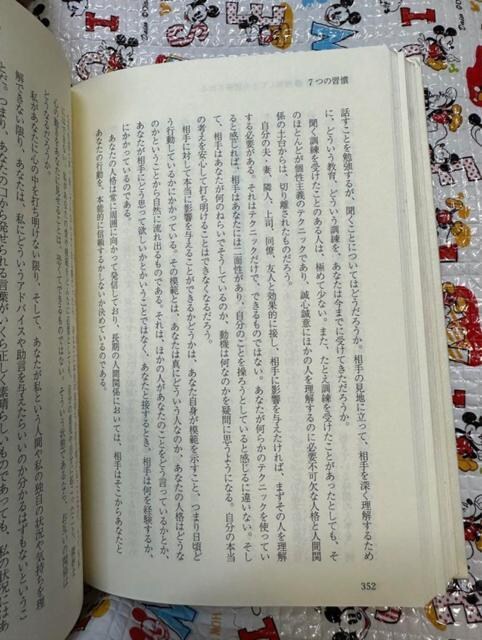 7つの習慣
話すことを勉強するが、聞くことについてはどうだろうか。相手の見地に立って、相手を深く理解するため
に、どういう教育、どういう訓練を、あなたは今までに受けてきただろうか。
聞く訓練を受けたことのある人は、極めて少ない。また、たとえ訓練を受けたことがあったとしても、そ
のほとんどが個性主義のテクニックであり、誠心誠意にほかの人を理解するのに必要不可欠な人格と人間関
係の土台からは、切り離されたものだろう。
自分の夫、妻、隣人、上司、同僚、友人と効果的に接し、相手に影響を与えたければ、まずその人を理解
する必要がある。それはテクニックだけで、できるものではない。あなたが何らかのテクニックを使ってい
ると感じれば、相手はあなたには二面性があり、自分のことを操ろうとしていると感じるに違いない。そし
て、相手はあなたが何のねらいでそうしているのか、動機は何なのかを疑問に思うようになる。自分の本当
の考えを安心して打ち明けることはできなくなるだろう。
相手に対して本当に影響を与えることができるかどうかは、あなた自身が模範を示すこと、つまり日頃ど
う行動しているかにかかっている。その模範とは、あなたは真にどういう人なのか、あなたの人格はどうな
のかということから自然に流れ出るものである。それは、ほかの人があなたのことをどう言っているかとか、
あなたが相手にどう思って欲しいかとかということではなく、あなたと接するとき、相手は何を経験するか、
にかかっているのである。
あなたの人格は常に周囲に向かって発信しており、長期の人間関係においては、相手はそこからあなたと
あなたの行動を、本能的に信頼するかしないか決めているのである。
352
どうなるだろうか。
私があなたに心の中を打ち明けない限り、そして、あなたが私という人間や私の独自の状況や気持ちを理
解できない限り、あなたは、私にどういうアドバイスや助言を与えたらいいのか分かるはずもないというこ
とだ。つまり、あなたの口から発せられる言葉がいくら正しく素晴らしいものであっても、私の状況にはあ